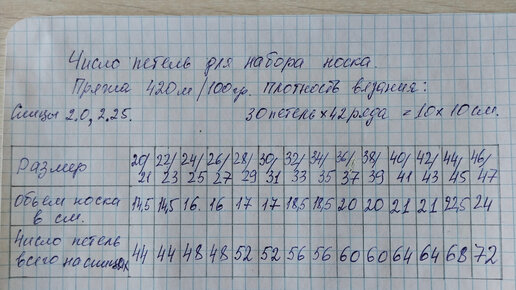 Число петель для набора носка.
Пряжа 420м/100гр. Плотность вязания:
Спицы 2.0, 2,25. 30петель×42ряда = 10×10см.
Размер 20/21 22/23 24/25 26/27 28/29 30/31 32/33 34/35 36/37 38/39 40/41 42/43 44/45 46/47
Объём носка в см. 14,5 14,5 16. 16 17 17 18,5 18,5 20 20 21 21 22,5 24
Число петель всего на спицах 44 44 48 48 52 52 56 56 60 60 64 64 68 72